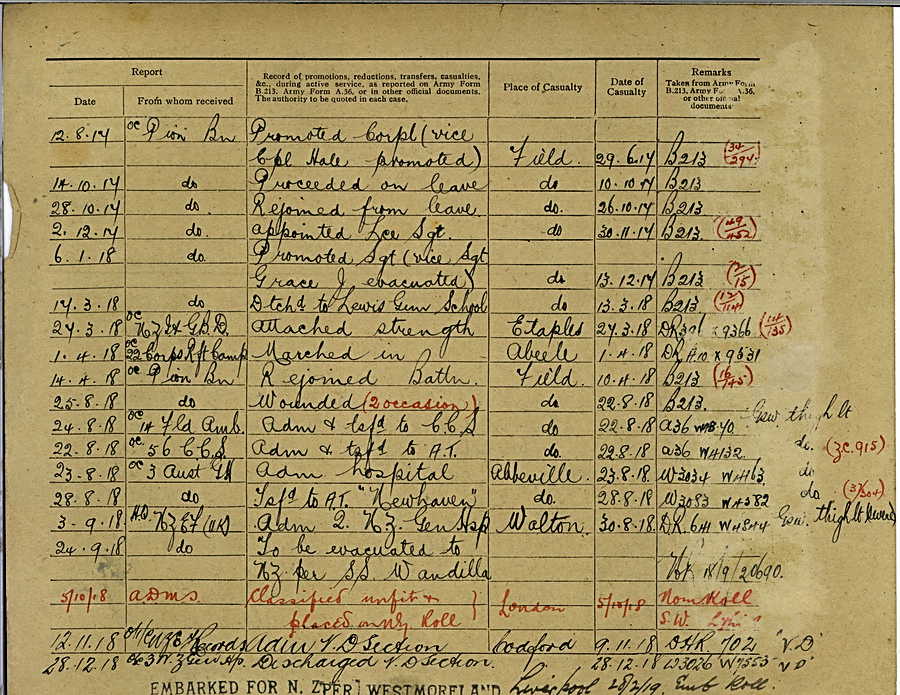 Report
Record of promotions, reductions, transfers, casualties, &c., during active service, as reported on Army Form B.213, Army Form A.36, or in other official documents. The authority to be quoted in each case.
Place of Casualty
Date of Casualty
Remarks
Taken from Army Form B.213, Army Form A.36, or other official documents
Date
From whom received
12.8.17 OC Pion Bn Promoted Corpl (vice
Cpl Hale promoted) Field. 29.6.17 B213 34/294
14.10.17 do Proceeded on leave do 10.10.17 B213
28.10.17 do. Rejoined from leave. do. 26.10.17 B213
2.12.17 do. appointed Lce Sgt. do 30.11.17 B213. 49/452
6.1.18 do. Promoted Sgt (vice Sgt
Grace J evacuated) do 13.12.17 B213
17.3.18 do Dtchd to Lewis Gun School do 13.3.18 B213
27.3.18 OC NZ I & GBD. attached strength Etaples 27.3.18 9366
1.4.18 OC 22 Corps Rft Camp Marched in Abeele 1.4.18 DR x 9531
14.4.18 OC Pion Bn Rejoined Battn. Field. 10.4.18 B213
25.8.18 do Wounded (2 occasion) do 22.8.18 B213.
24.8.18 OC Fld Amb. Adm & tsfd to CCS do 22.8.18 A36 Gsw. thigh lt
22.8.18 OC 56 CCS Adm & tsfd to A.T. do. 22.8.18 A36 W4132 do. (ZC.915)
23.8.18 OC 3 Aust GH Adm hospital Abbeville. 23.8.18 W3034 do
28.8.18 do Tsfd to A.T. "Newhaven" do. 28.8.18 W3083 W4382 do
3.9.18 H.Q. NZEF (UK) Adm 2. NZ. Gen Hsp Walton. 30.8.18. DR Gsw. thigh lt severe
24.9.18 do To be evacuated to
NZ per SS. Wandilla
5/10/18 ADMS. Classified unfit &
placed on NZ Roll } London 5/10/18 Nom Roll
12.11.18 Records Adm V.D Section Codford 9.11.18 702 "V.D"
28.12.18 OC 3 N.Z Gen Hp. Discharged V.D Section. 28.12.18 W3026 W7553 "V D"
EMBARKED FOR N. Z. PER WESTMORELAND Liverpool Emb Roll.